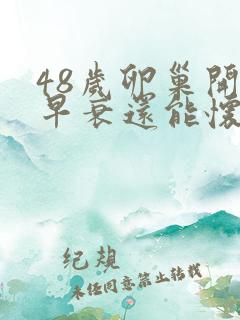 48歲卵巢開
早衰還能懷
纪规
未经同意禁止转载